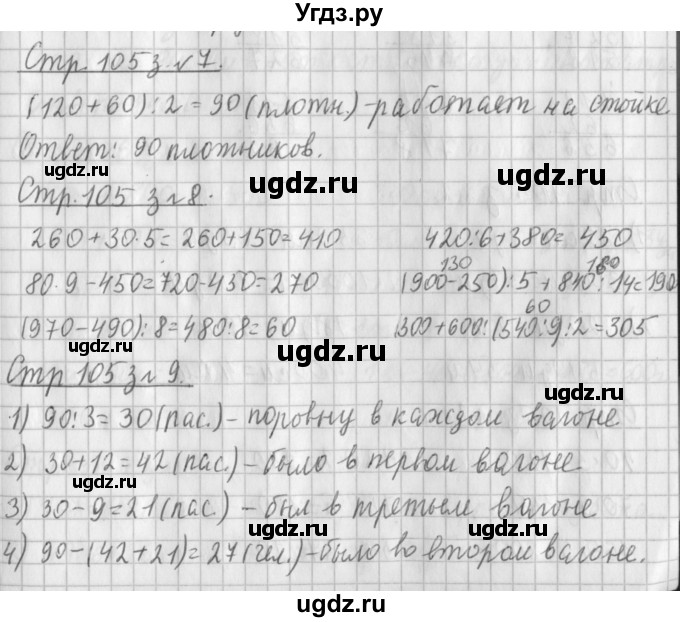 Угдз.ру
Стр. 105 з. № 7.
(120+60):2=90(плотн.)-работает на стойке
Ответ: 90 плотников.
ugdz.ru
ugdz.ru
ugdz.ru
Стр. 105 з № 8.
260+30·5=260+150=410 420:6+380=450
130 180
80·9-450=720-450=270 (900-250):5+840:14=190
60
(970-490):8=480:8=60 300+600:(540:9):2=305
ugdz.ru
Стр 105 з № 9.
ugdz.ru
ugdz.ru
1) 90:3=30(пас.)-поровну в каждом вагоне
2) 30+12=42(пас.)-было в первом вагоне
ugdz.ru
3) 30-9=21(пас.)-был в третьем вагоне
ugdz.ru
4) 90-(42+21)=27(чел.)-было во втором вагоне.
ugdz.ru
ugdz.ru